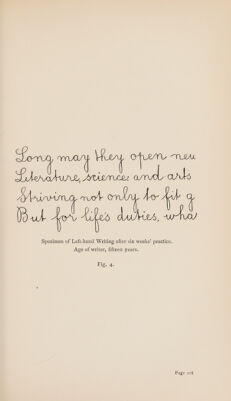 Long may they open new
Literature, science and arts
Striving not only to fit g
But for life's duties, wha
Specimen of Left-hand Writing after six weeks' practice.
Age of writer, fifteen years.
Fig. 4.
Page